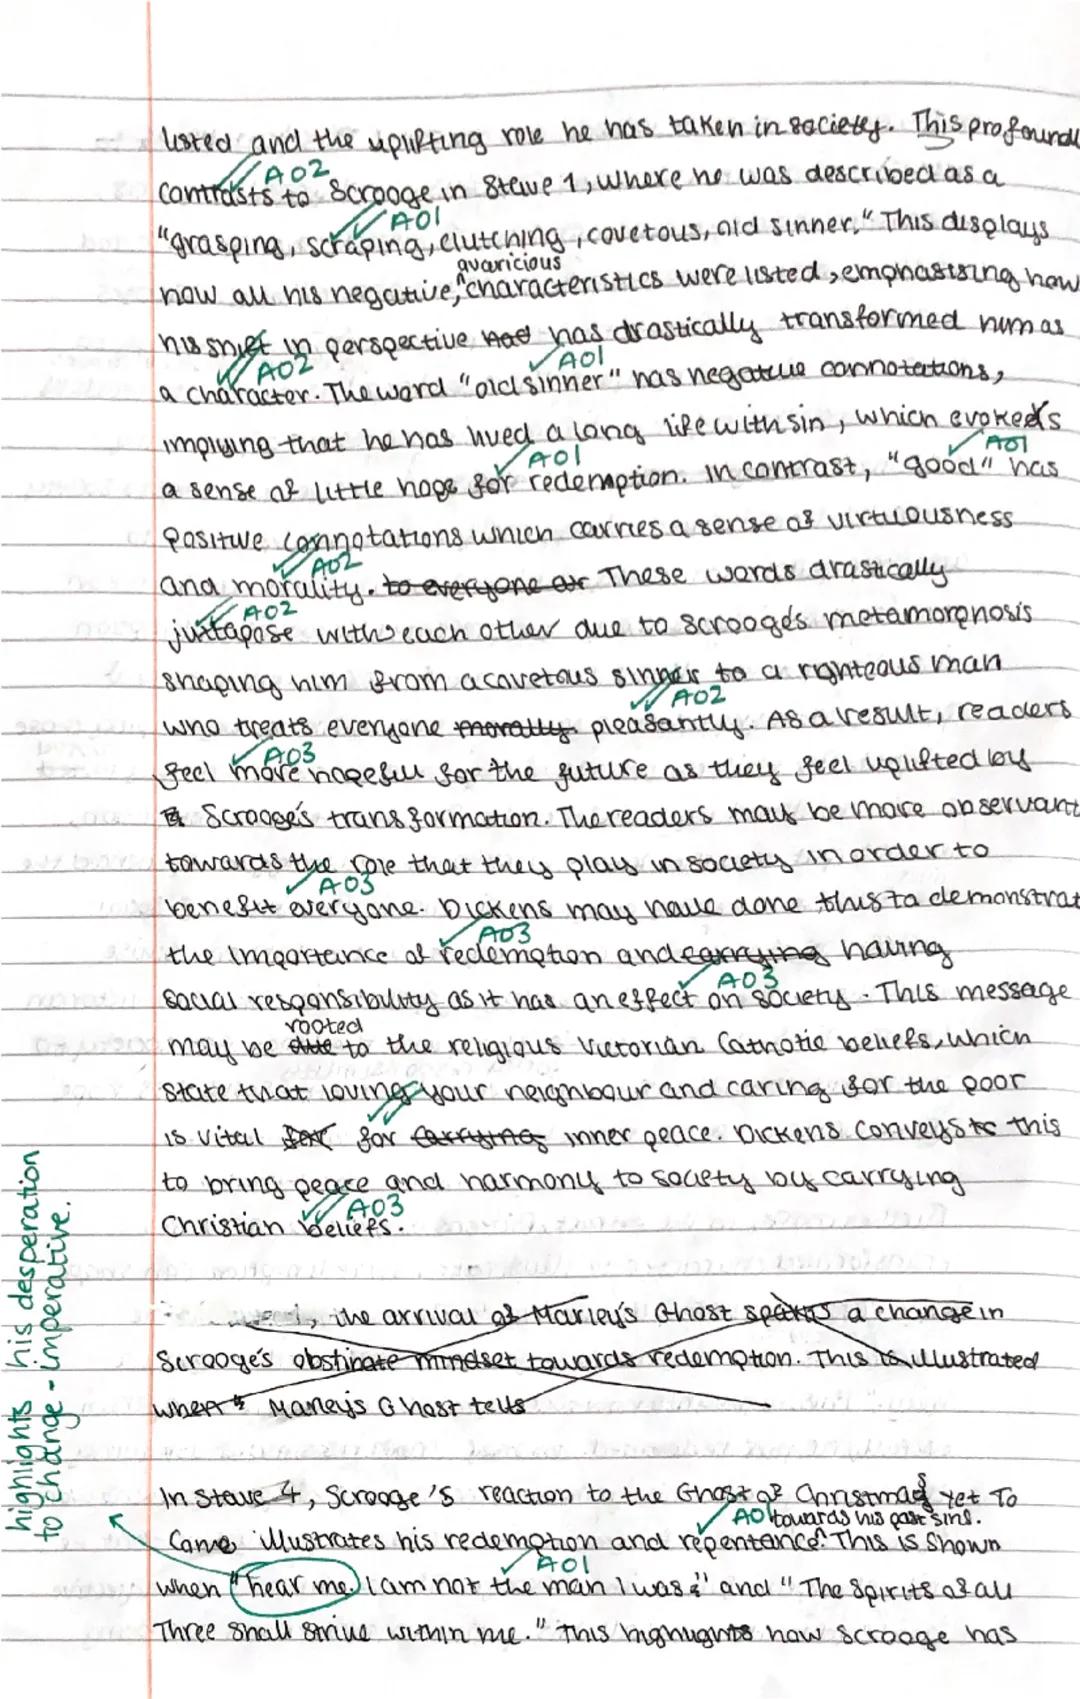 listed and the uplifting role he has taken in society. This profoundl
AO2
contrasts to Scrooge in Stave 1, where he was described as a
AO1
"grasping, scraping, clutching, covetous, old sinner." This displays
avaricious
how all his negative, characteristics were listed, emphasising how
his shift in perspective had has drastically transformed him as
AO2 AO1
a character. The word "old sinner" has negative connotations,
implying that he has lived a long life with sin, which evokes
AO1 AO1
a sense of little hope for redemption. In contrast, "good" has
positive connotations which carries a sense of virtuousness
AO2
and morality. to everyone These words drastically
AO2
juxtapose with each other due to Scrooge's metamorphosis
shaping him from a covetous sinner to a righteous man
AO2
who treats everyone morally pleasantly. As a result, readers
AO3
feel more hopeful for the future as they feel uplifted by
Scrooge's transformation. The readers may be more observant
towards the role that they play in society in order to
AO3
benefit everyone. Dickens may have done this to demonstrat
AO3
the importance of redemption and carrying having
AO3
social responsibility as it has an effect on society. This message
rooted
may be due to the religious Victorian Catholic beliefs, which
state that loving your neighbour and caring for the poor
is vital for for carrying inner peace. Dickens conveys this
to bring peace and harmony to society by carrying
AO3
Christian beliefs.
, the arrival of Marley's Ghost sparks a change in
Scrooge's obstinate mindset towards redemption. This is illustrated
when Marley's Ghost tells
In Stave 4, Scrooge's reaction to the Ghost of Christmas Yet To
AO1 towards his past sins.
Come illustrates his redemption and repentance. This is shown
AO1
when "hear me I am not the man I was" and "The Spirits of all
Three shall strive within me." This highlights how Scrooge has
highlights his desperation
to change - imperative.